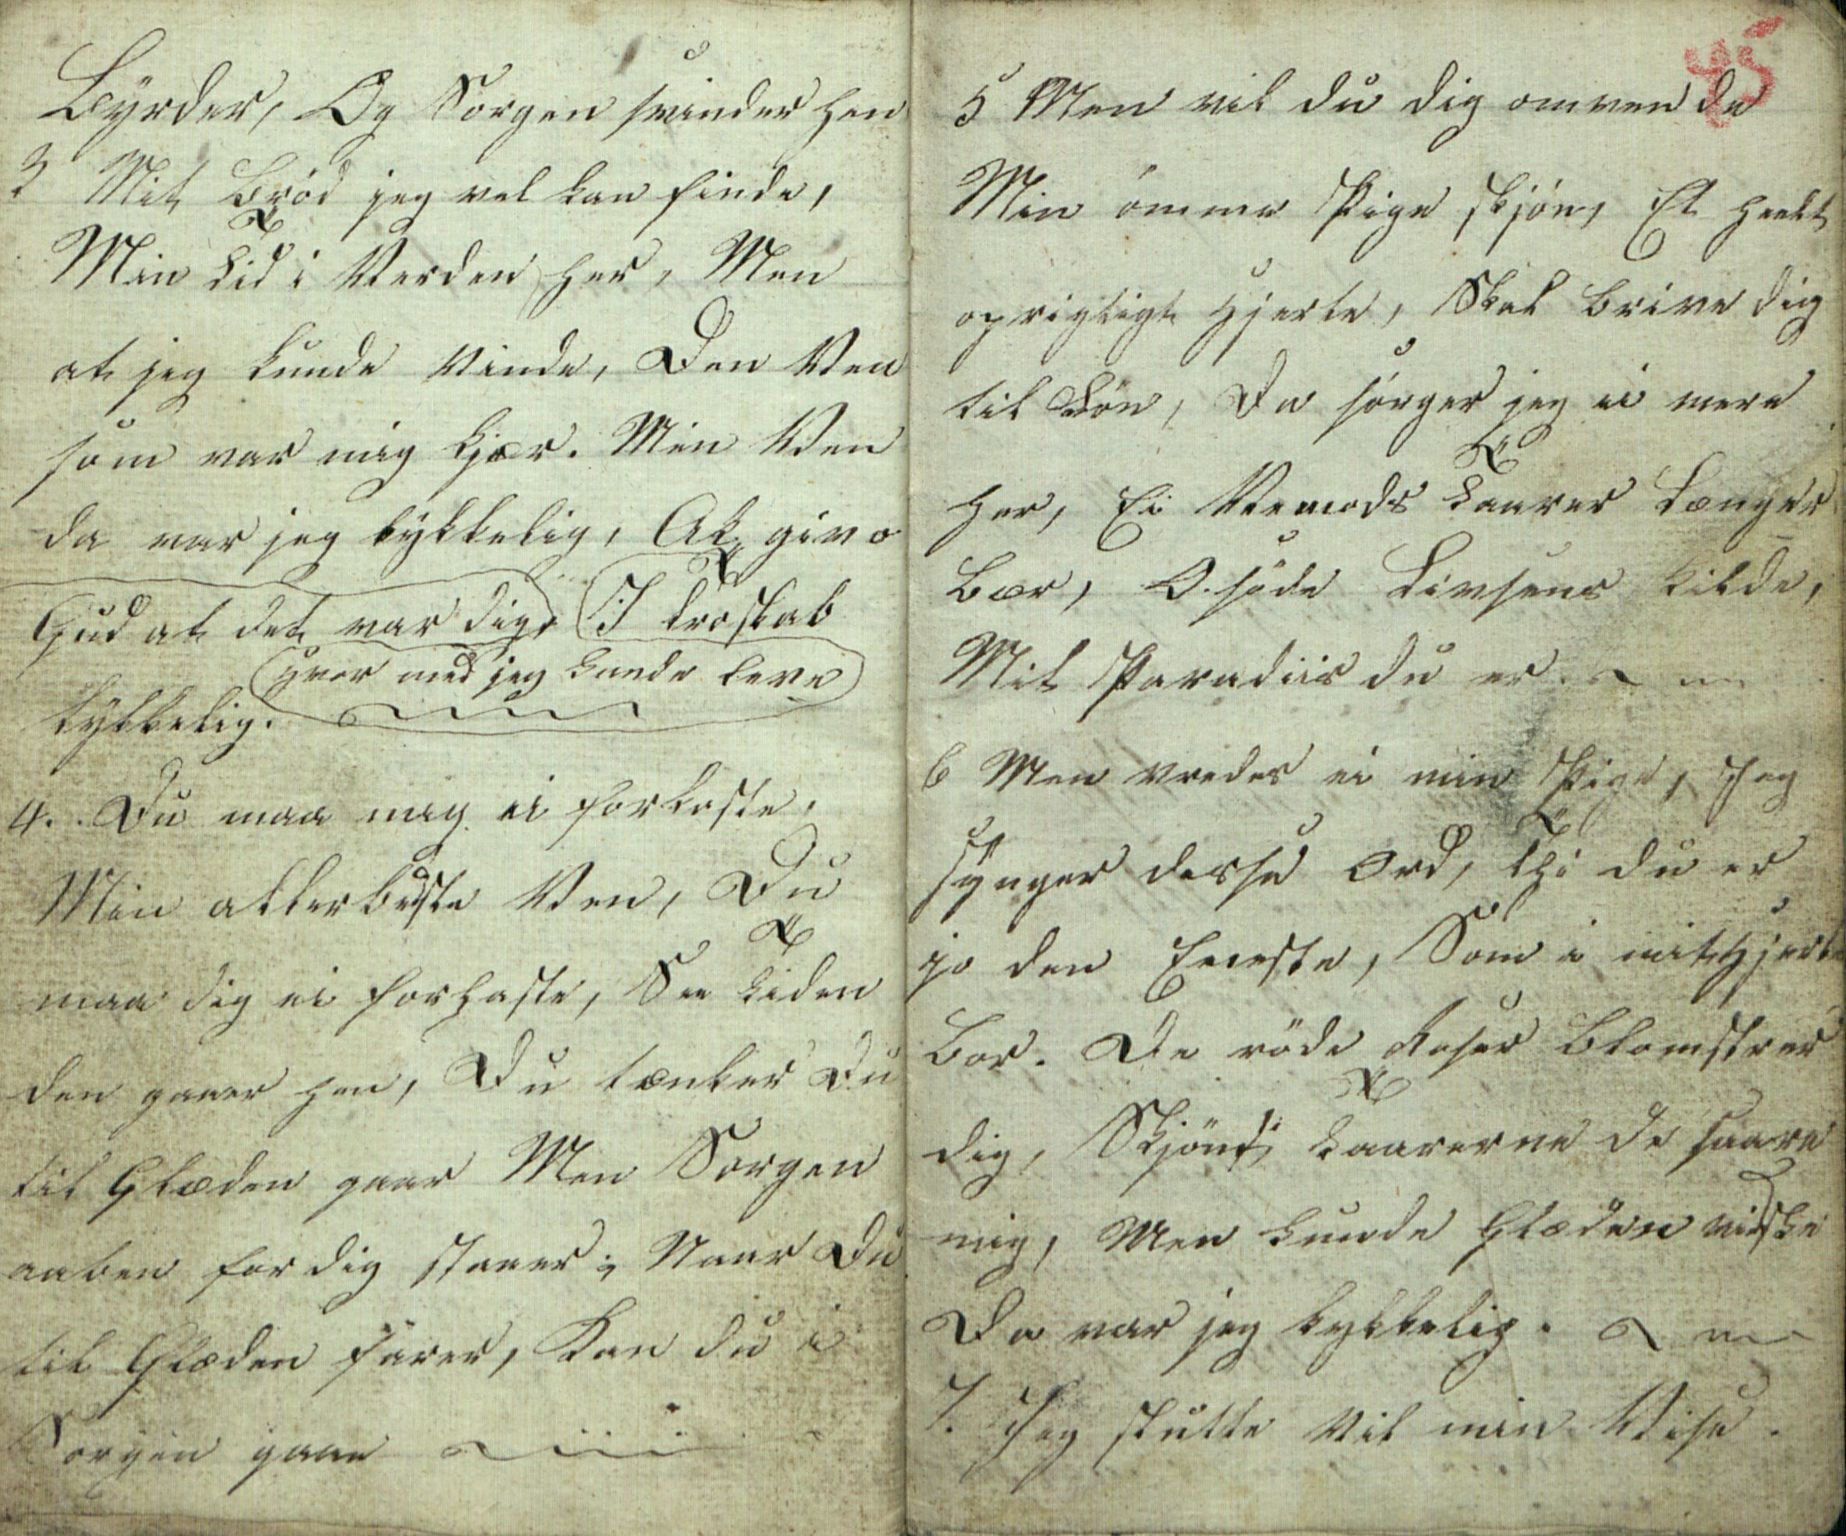 Byrder, Og Sorgen svinder hen
3 Mit Brød jeg vel kan finde,
Min Tid i Verden her, Men
at jeg kunde Vinde, Den Ven
som var mig kjær. Min Ven
da var jeg lykkelig, Ak give
Gud at det var dig, I troskab
hvor med jeg kunde leve
lykkelig.
4. Du maa mig ei forkaste,
Min allerbedste Ven, Du
maa dig ei forhaste, See Tiden
den gaaer hen, Du tænker Du
til Glæden gaar Men Sorgen
aaben for dig staaer; Naar Du
til Glæden farer, Kan du i
Sorgen gaae
45
5 Men vil du dig omvende
Min ömme Pige skjön, Et heelt
oprigtigt Hjerte, Skal blive dig
til Lön, Da sörger jeg ei mere
her, Ei Veemods Taarer længer
Bær, O söde Livsens Kilde,
Mit Paradiis du er.
6 Men vredes ei min Pige, Jeg
synger disse Ord, Thi du er
jo den Eeneste, Som i mit Hjerte
Bor. De röde Roser Blomstrer
dig, Skjönt Taarerne de saare
mig, Men kunde Glæden
Da var jeg lykkelig.
7. Jeg slutte vil min Vise.